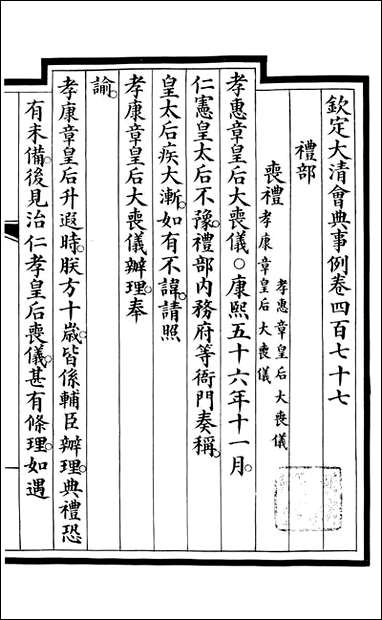 欽定大清會典事例卷四百七十七
禮部
喪禮
孝惠章皇后大喪儀
孝康章皇后大喪儀
孝惠章皇后大喪儀○康熙五十六年十一月。
仁憲皇太后不豫。禮部內務府等衙門奏稱。
皇太后疾大漸。如有不諱。請照
孝康章皇后大喪儀辦理。奉
諭。
孝康章皇后升遐時。朕方十歲。皆係輔臣辦理。典禮恐
有未備。後見治仁孝皇后喪儀。甚有條理。如遇